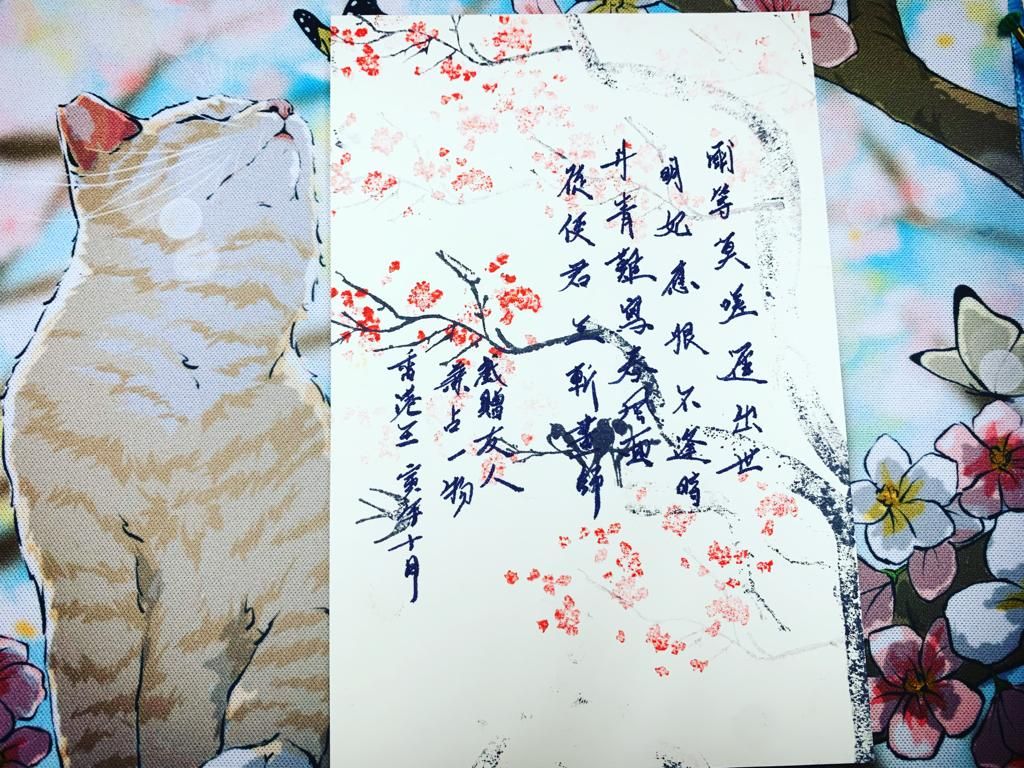 爾等莫嗟遲出世
明妃應恨不逢時
丹青難寫春風面
從使君王斬畫師
贈友人
兼占一物
香港壬寅年十月